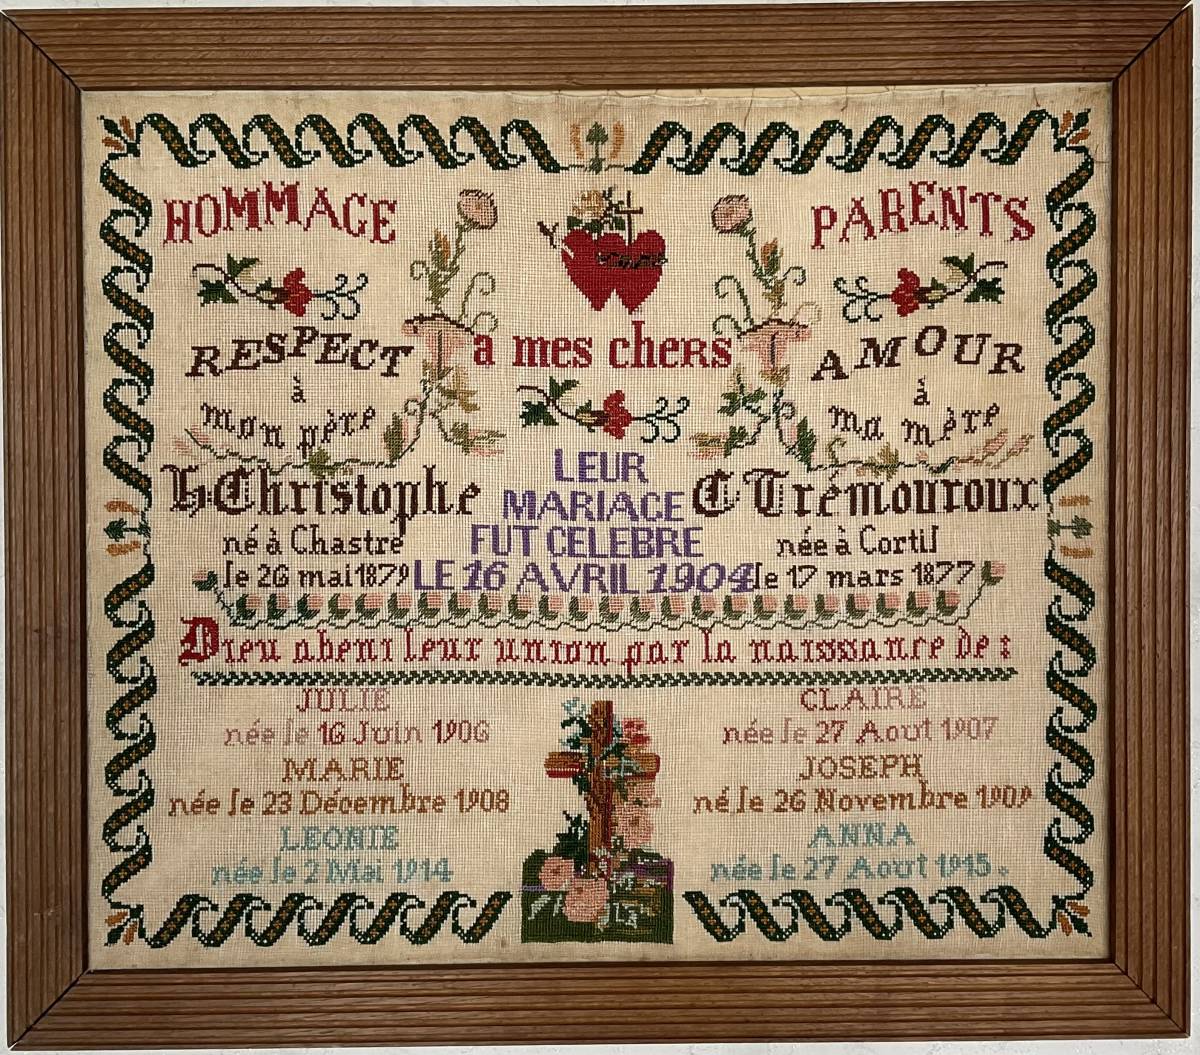 HOMMAGE
PARENTS
a mes cheRs
RESPECT
à
mon père
AMOUR
à
ma mère
H Christophe
né à Chastre
le 26 mai 1879
LEUR
MARIAGE
FUT CELEBRE
LE 16 AVRIL 1904
C Trémouroux
née à Cortil
le 17 mars 1877
Dieu a beni leur union par la naissance de :
JULIE
née le 16 Juin 1906
CLAIRE
née le 27 Aout 1907
MARIE
née le 23 Décembre 1908
JOSEPH
né le 26 Novembre 1909
LEONIE
née le 2 Mai 1914
ANNA
née le 27 Aout 1915.